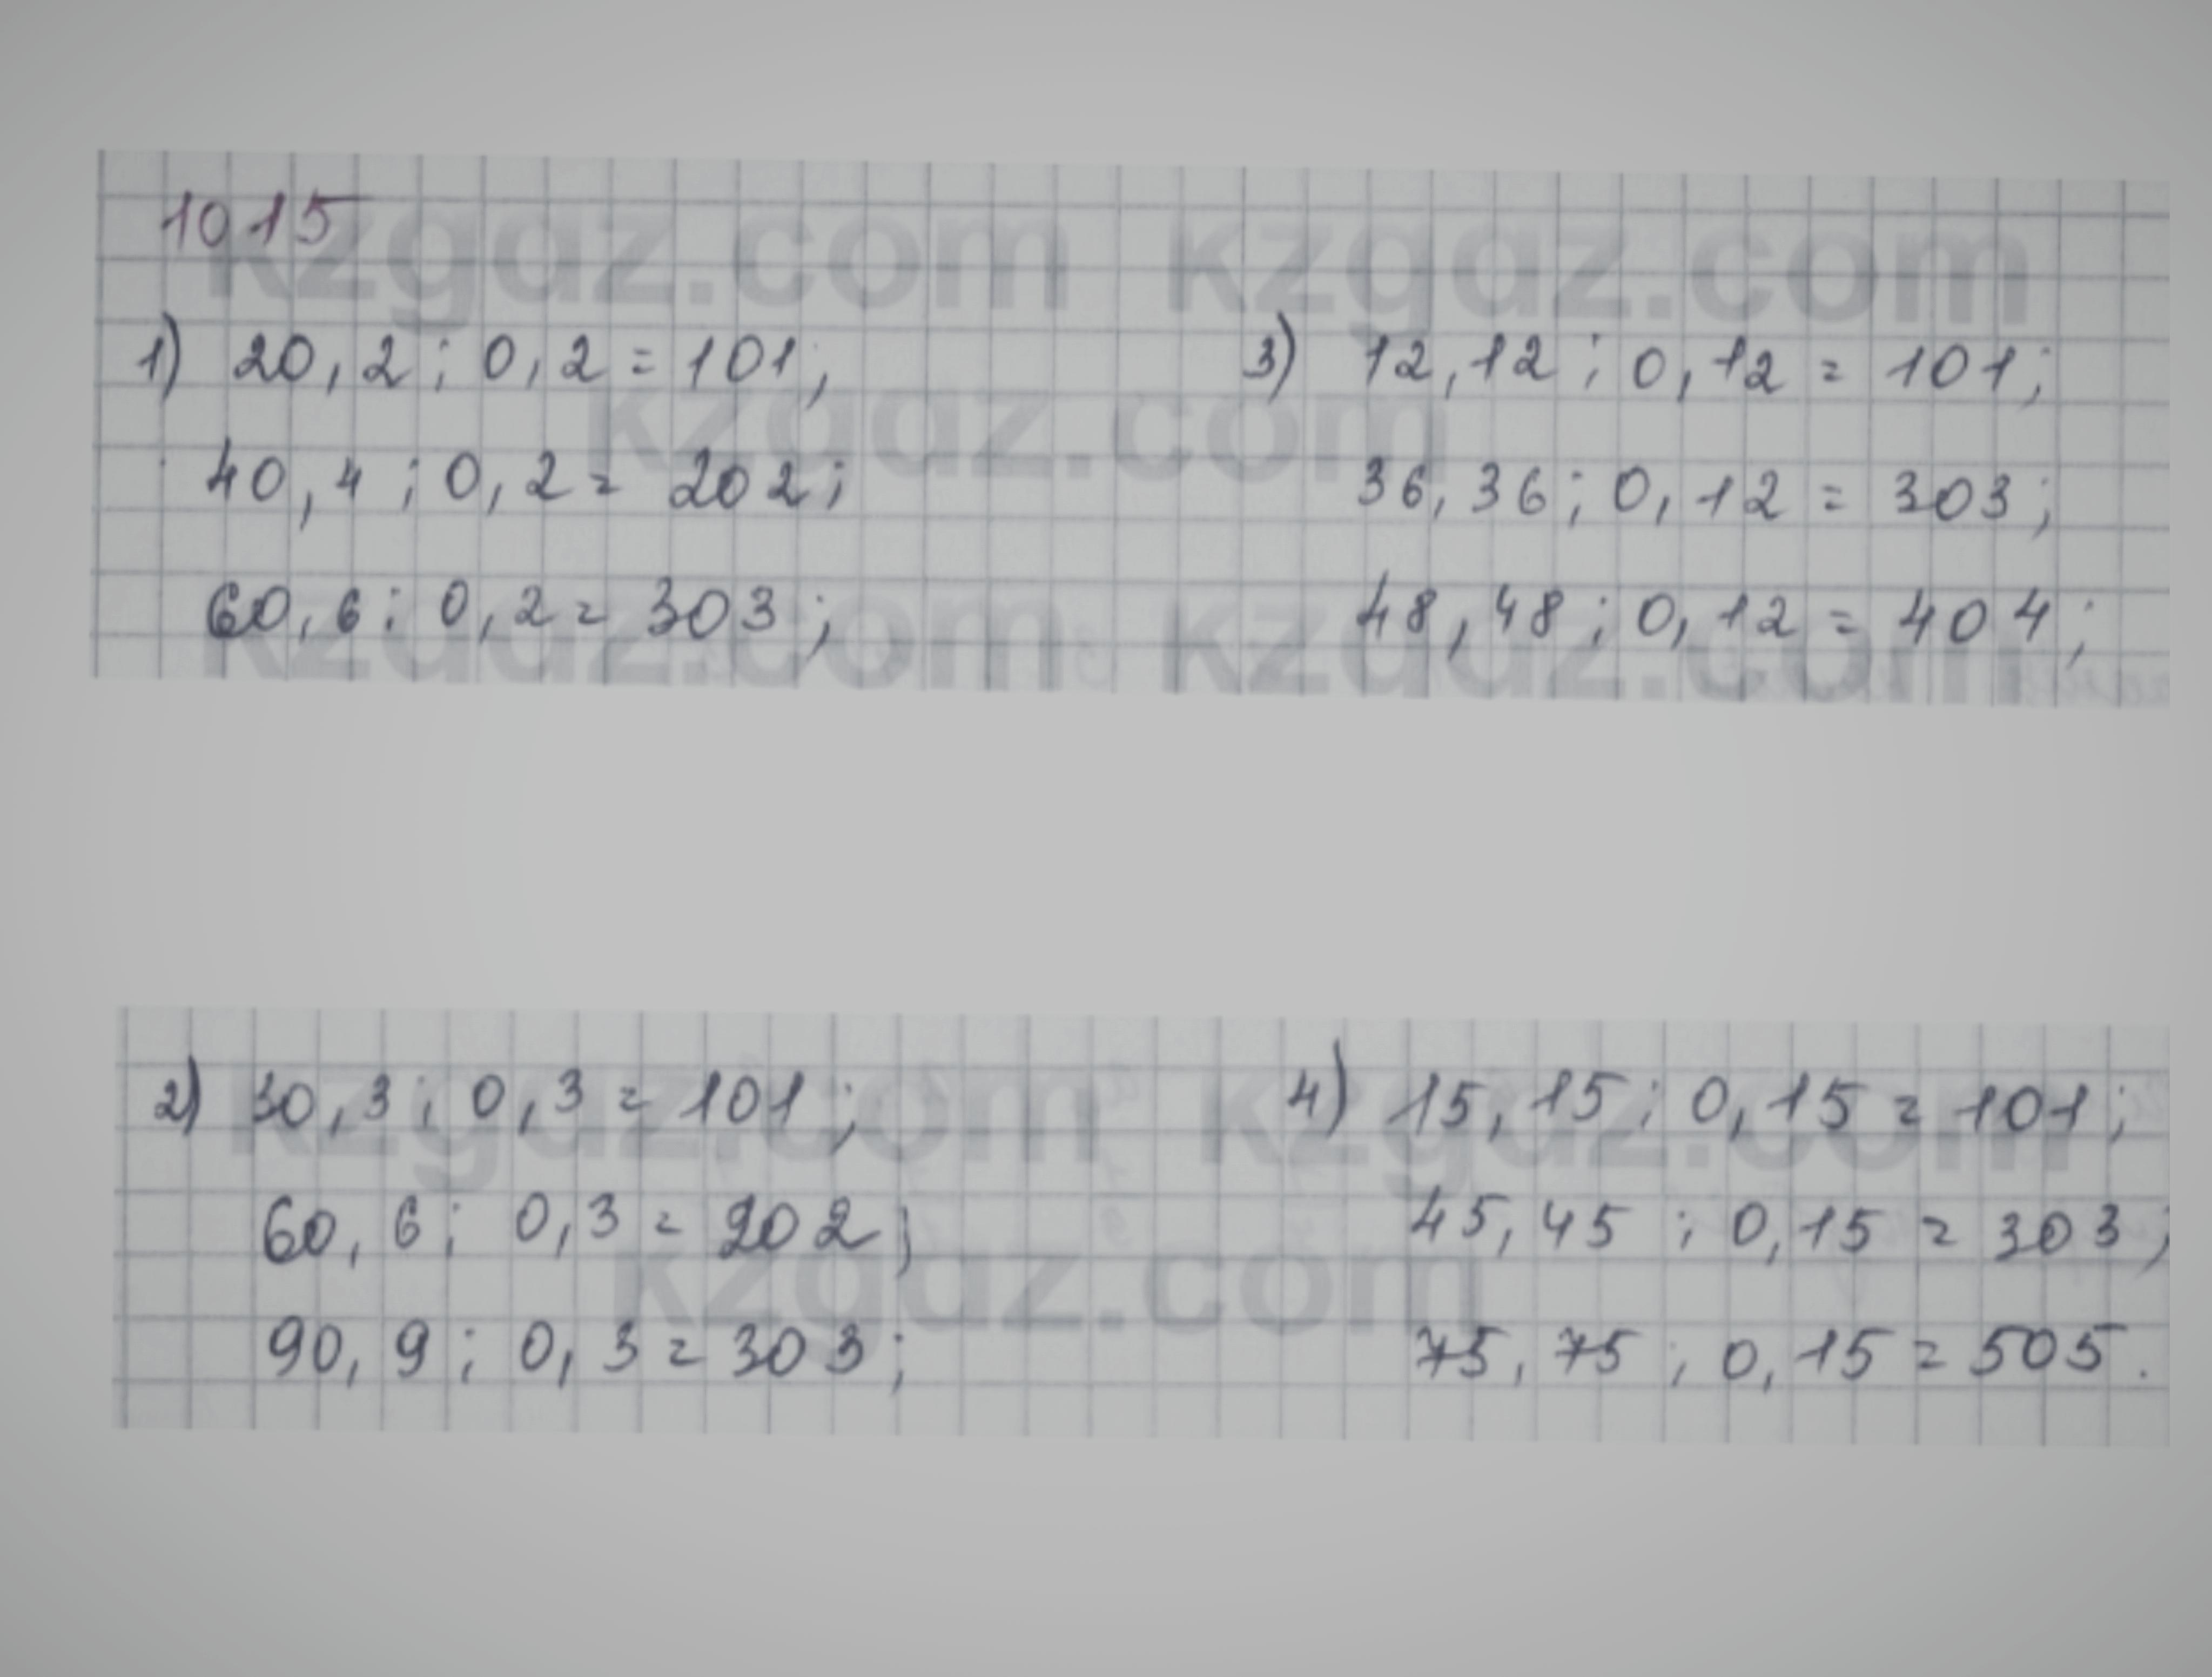 1015
1) 20,2 : 0,2 = 101;
40,4 : 0,2 = 202;
60,6 : 0,2 = 303;
3) 12,12 : 0,12 = 101;
36,36 : 0,12 = 303;
48,48 : 0,12 = 404;
2) 30,3 : 0,3 = 101;
60,6 : 0,3 = 202;
90,9 : 0,3 = 303;
4) 15,15 : 0,15 = 101;
45,45 : 0,15 = 303;
75,75 : 0,15 = 505.
kzgdz.com kzgdz.com
kzgdz.com
kzgdz.com kzgdz.com
kzgdz.com kzgdz.com
kzgdz.com